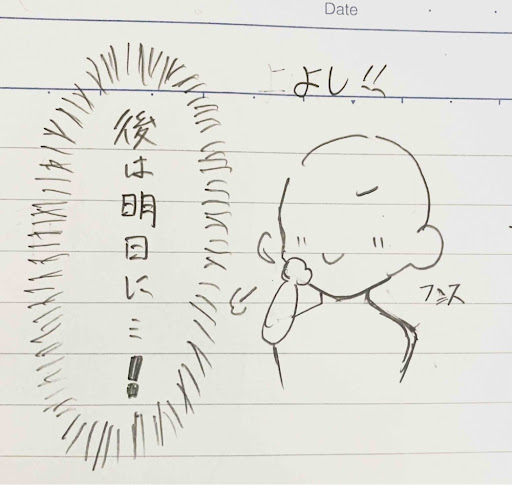 Date
よし!!
後は明日に…!
フンス